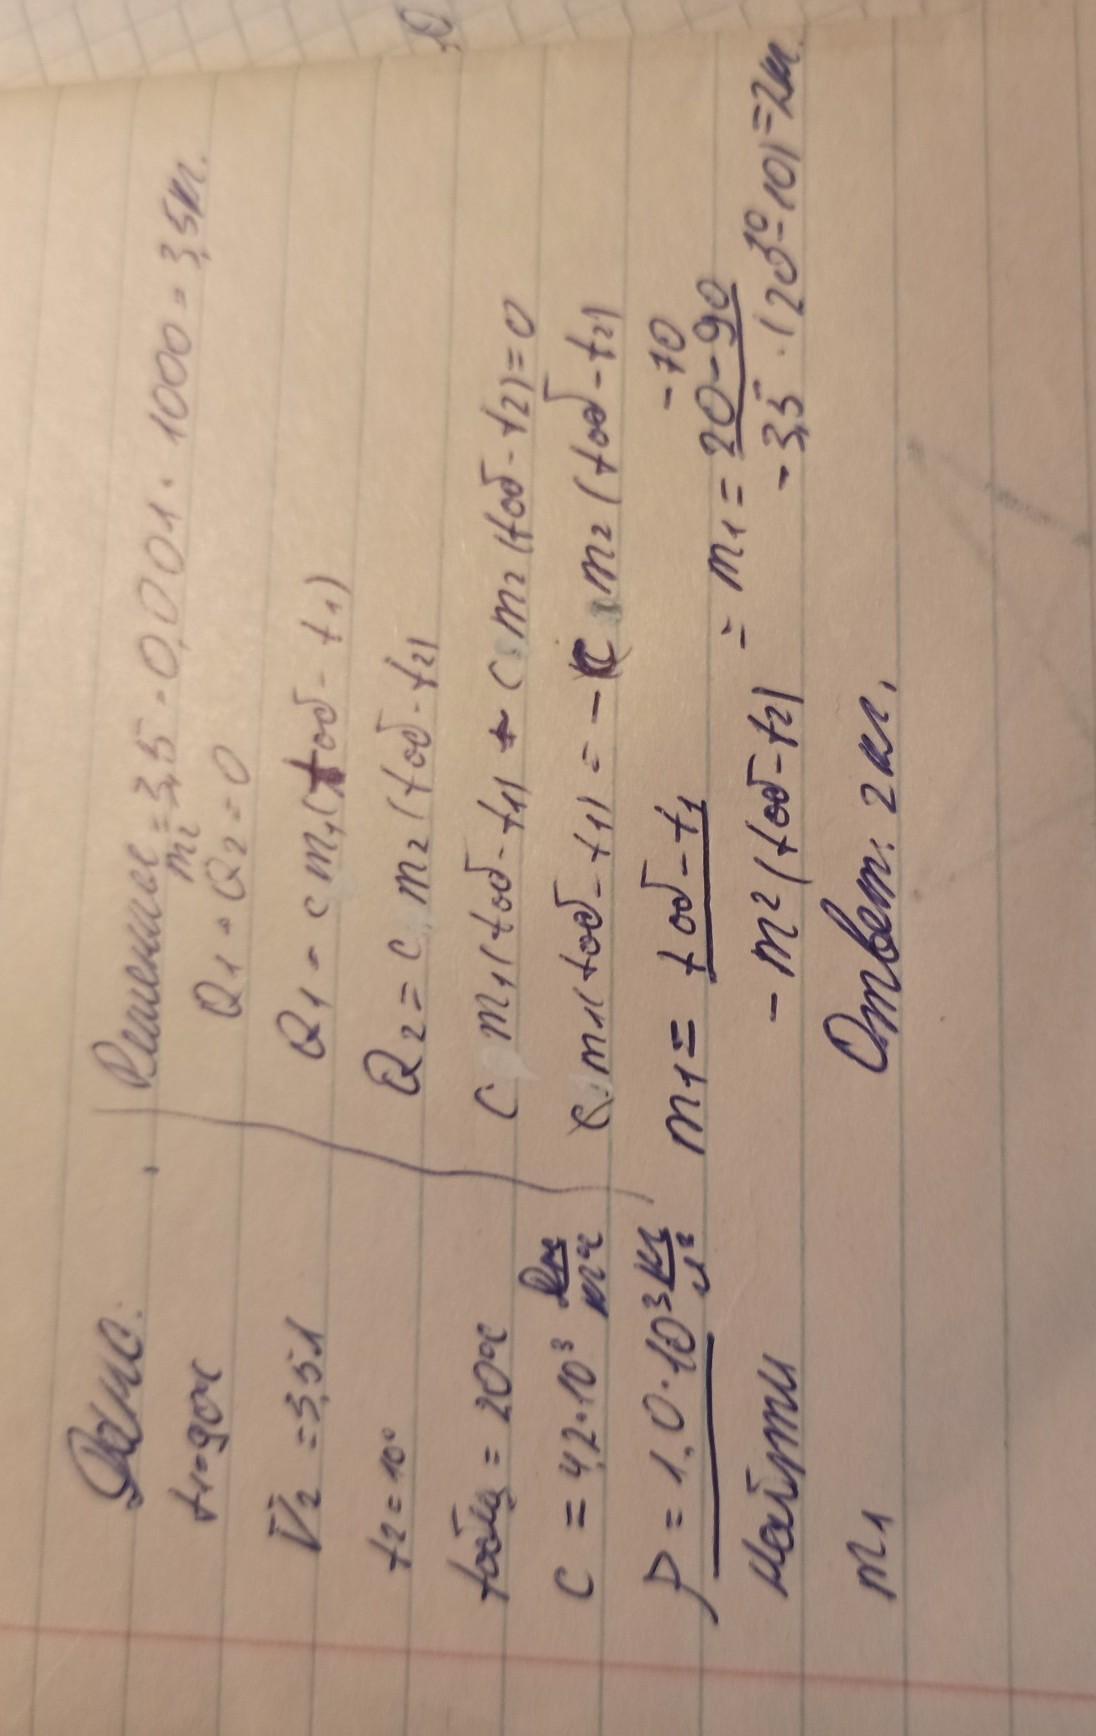 Дано:
t1=90°c
V2 = 3,5 л
t2 = 10°
tобщ = 20°c
C = 4,2•10³ Дж/кг°c
ρ = 1,0•10³ кг/м³
Найти
m1
Решение
m2 = 3,5 • 0,001 • 1000 = 3,5 кг.
Q1 + Q2 = 0
Q1 = c m1 (tоб - t1)
Q2 = c m2 (tоб - t2)
c m1 (tоб - t1) + c m2 (tоб - t2) = 0
c m1 (tоб - t1) = -c m2 (tоб - t2)
-70
m1 = tоб - t1 / -m2 (tоб - t2) = m1 = 20 - 90 / -3,5 • (20 - 10) = 2кг.
10
Ответ: 2 кг.